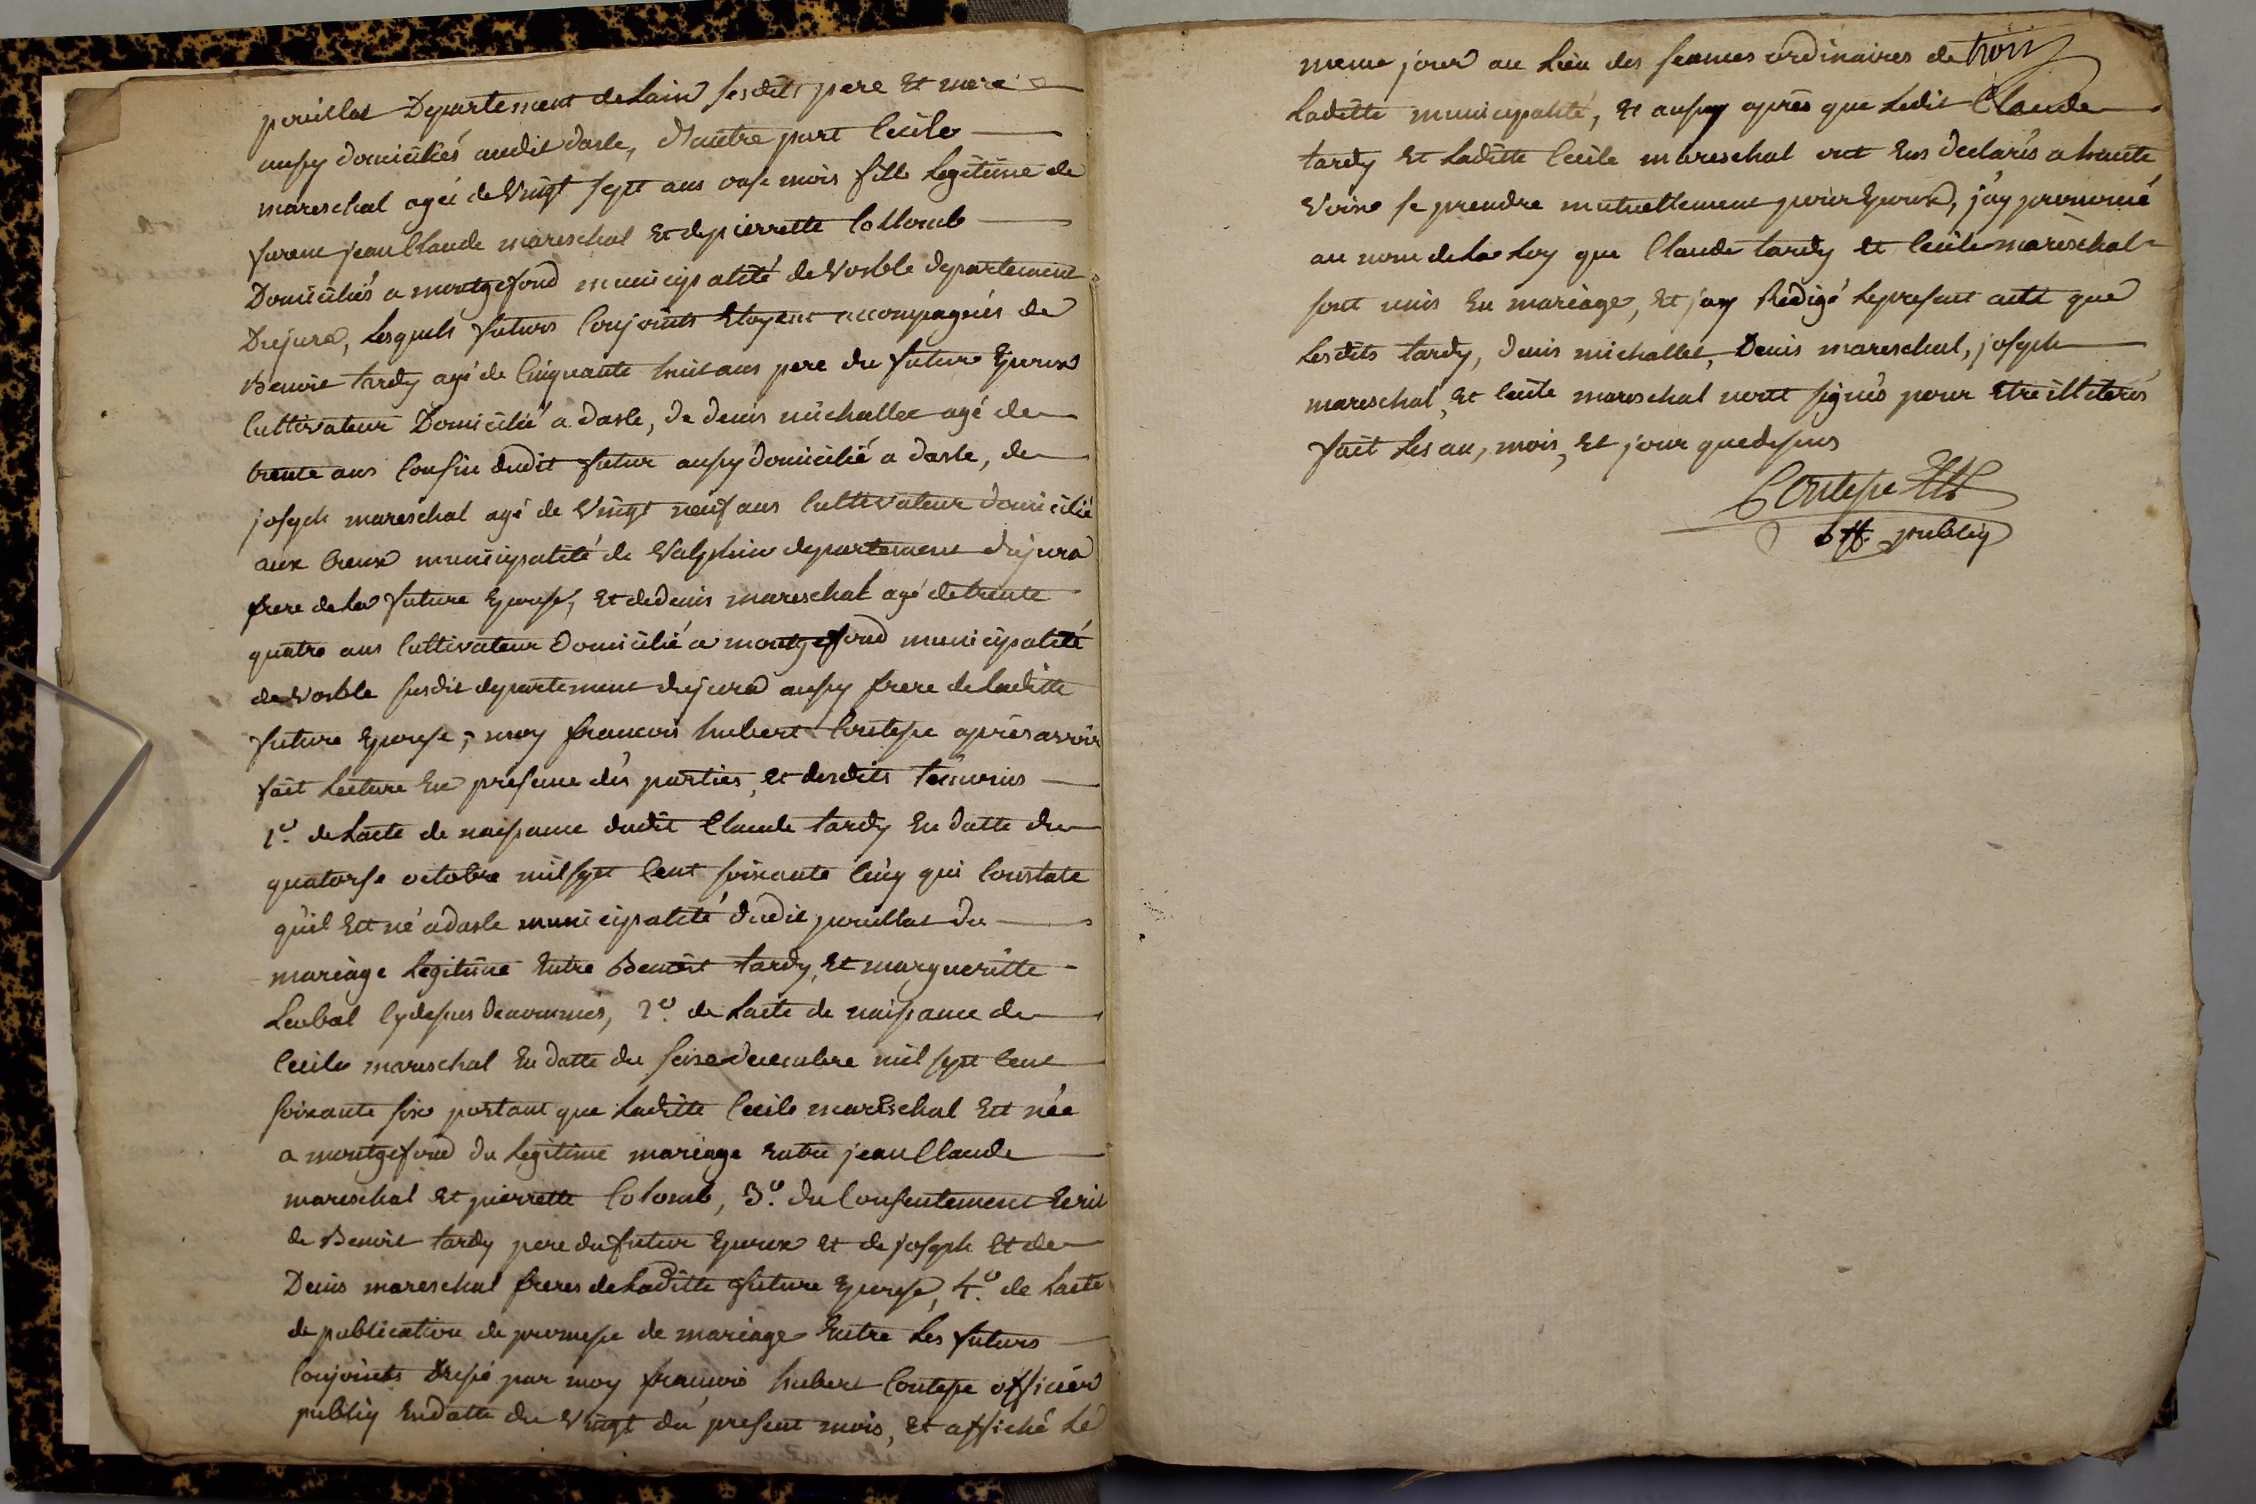 pouillat Departement de Lain sesdits pere Et mere
aussy domiciliés audit dasle, D'autre part Cecile
mareschal agée de Vingt sept ans onse mois fille Legitime de
furent jean Claude mareschal Et de pierrette Collomb
Domiciliés a montgefond municipalité de Vosble departement
Du jura, Lesquels futurs Conjoints Etoyent accompagnés de
Benoit tardy agé de Cinquante huit ans pere du futur Epoux
Cultivateur Domicilié a dasle, de denis michallet agé de
trente ans Cousin dudit futur aussy domicilié a dasle, de
joseph mareschal agé de Vingt neuf ans Cultivateur domicilié
aux Creux municipalité de Valphin departement du jura
frere de La future Epouse, Et de denis mareschal agé de trente
quatre ans Cultivateur Domicilié a montgefond municipalité
de Vosble susdit departement du jura aussy frere de Laditte
future Epouse; moy francois hubert Coutepe apres avoir
fait Lecture En presence des parties, et desdits temoins
1.º de Lacte de naissance dudit Claude tardy En datte du
quatorse octobre mil sept Cent soixante Cinq qui Constate
qu'il Est né a dasle municipalité dudit pouillat du
mariage Legitime Entre Benoit tardy, Et margueritte
Cy dessus denommes, 2.º de Lacte de naissance de
Cecile mareschal En datte du seise decembre mil sept Cent
soixante six portant que Laditte Cecile marEschal Est née
a montgefond du Legitime mariage entre jean Claude
mareschal Et pierrette Colomb, 3.º du Consentement Ecrit
de Benoit tardy pere du futur Epoux et de joseph Et de
Denis mareschal freres de Laditte future Epouse, 4.º de Lacte
de publication de promesse de mariage Entre Les futurs
Conjoints Dressé par moy francois hubert Coutepe officier
publiq En datte du Vingt du present mois, Et affiché Le
meme jour au Lieu des seances ordinaires de trois
Laditte municipalité, Et aussy après que Ledit Claude
tardy Et Laditte Cecile mareschal ont Eus declarés a haute
Voix se prendre mutuellement pour Epoux, j'ay prononcé
au nom de La Loy que Claude tardy et Cecile mareschal
sont unis En mariage, Et jay Redigé Le present acte que
Lesdits tardy, denis michallet, Denis mareschal, joseph
mareschal, Et Cecile mareschal nont signés pour Etre illiterés
fait Les an, mois, Et jour que dessus
Coutepe
off. publiq